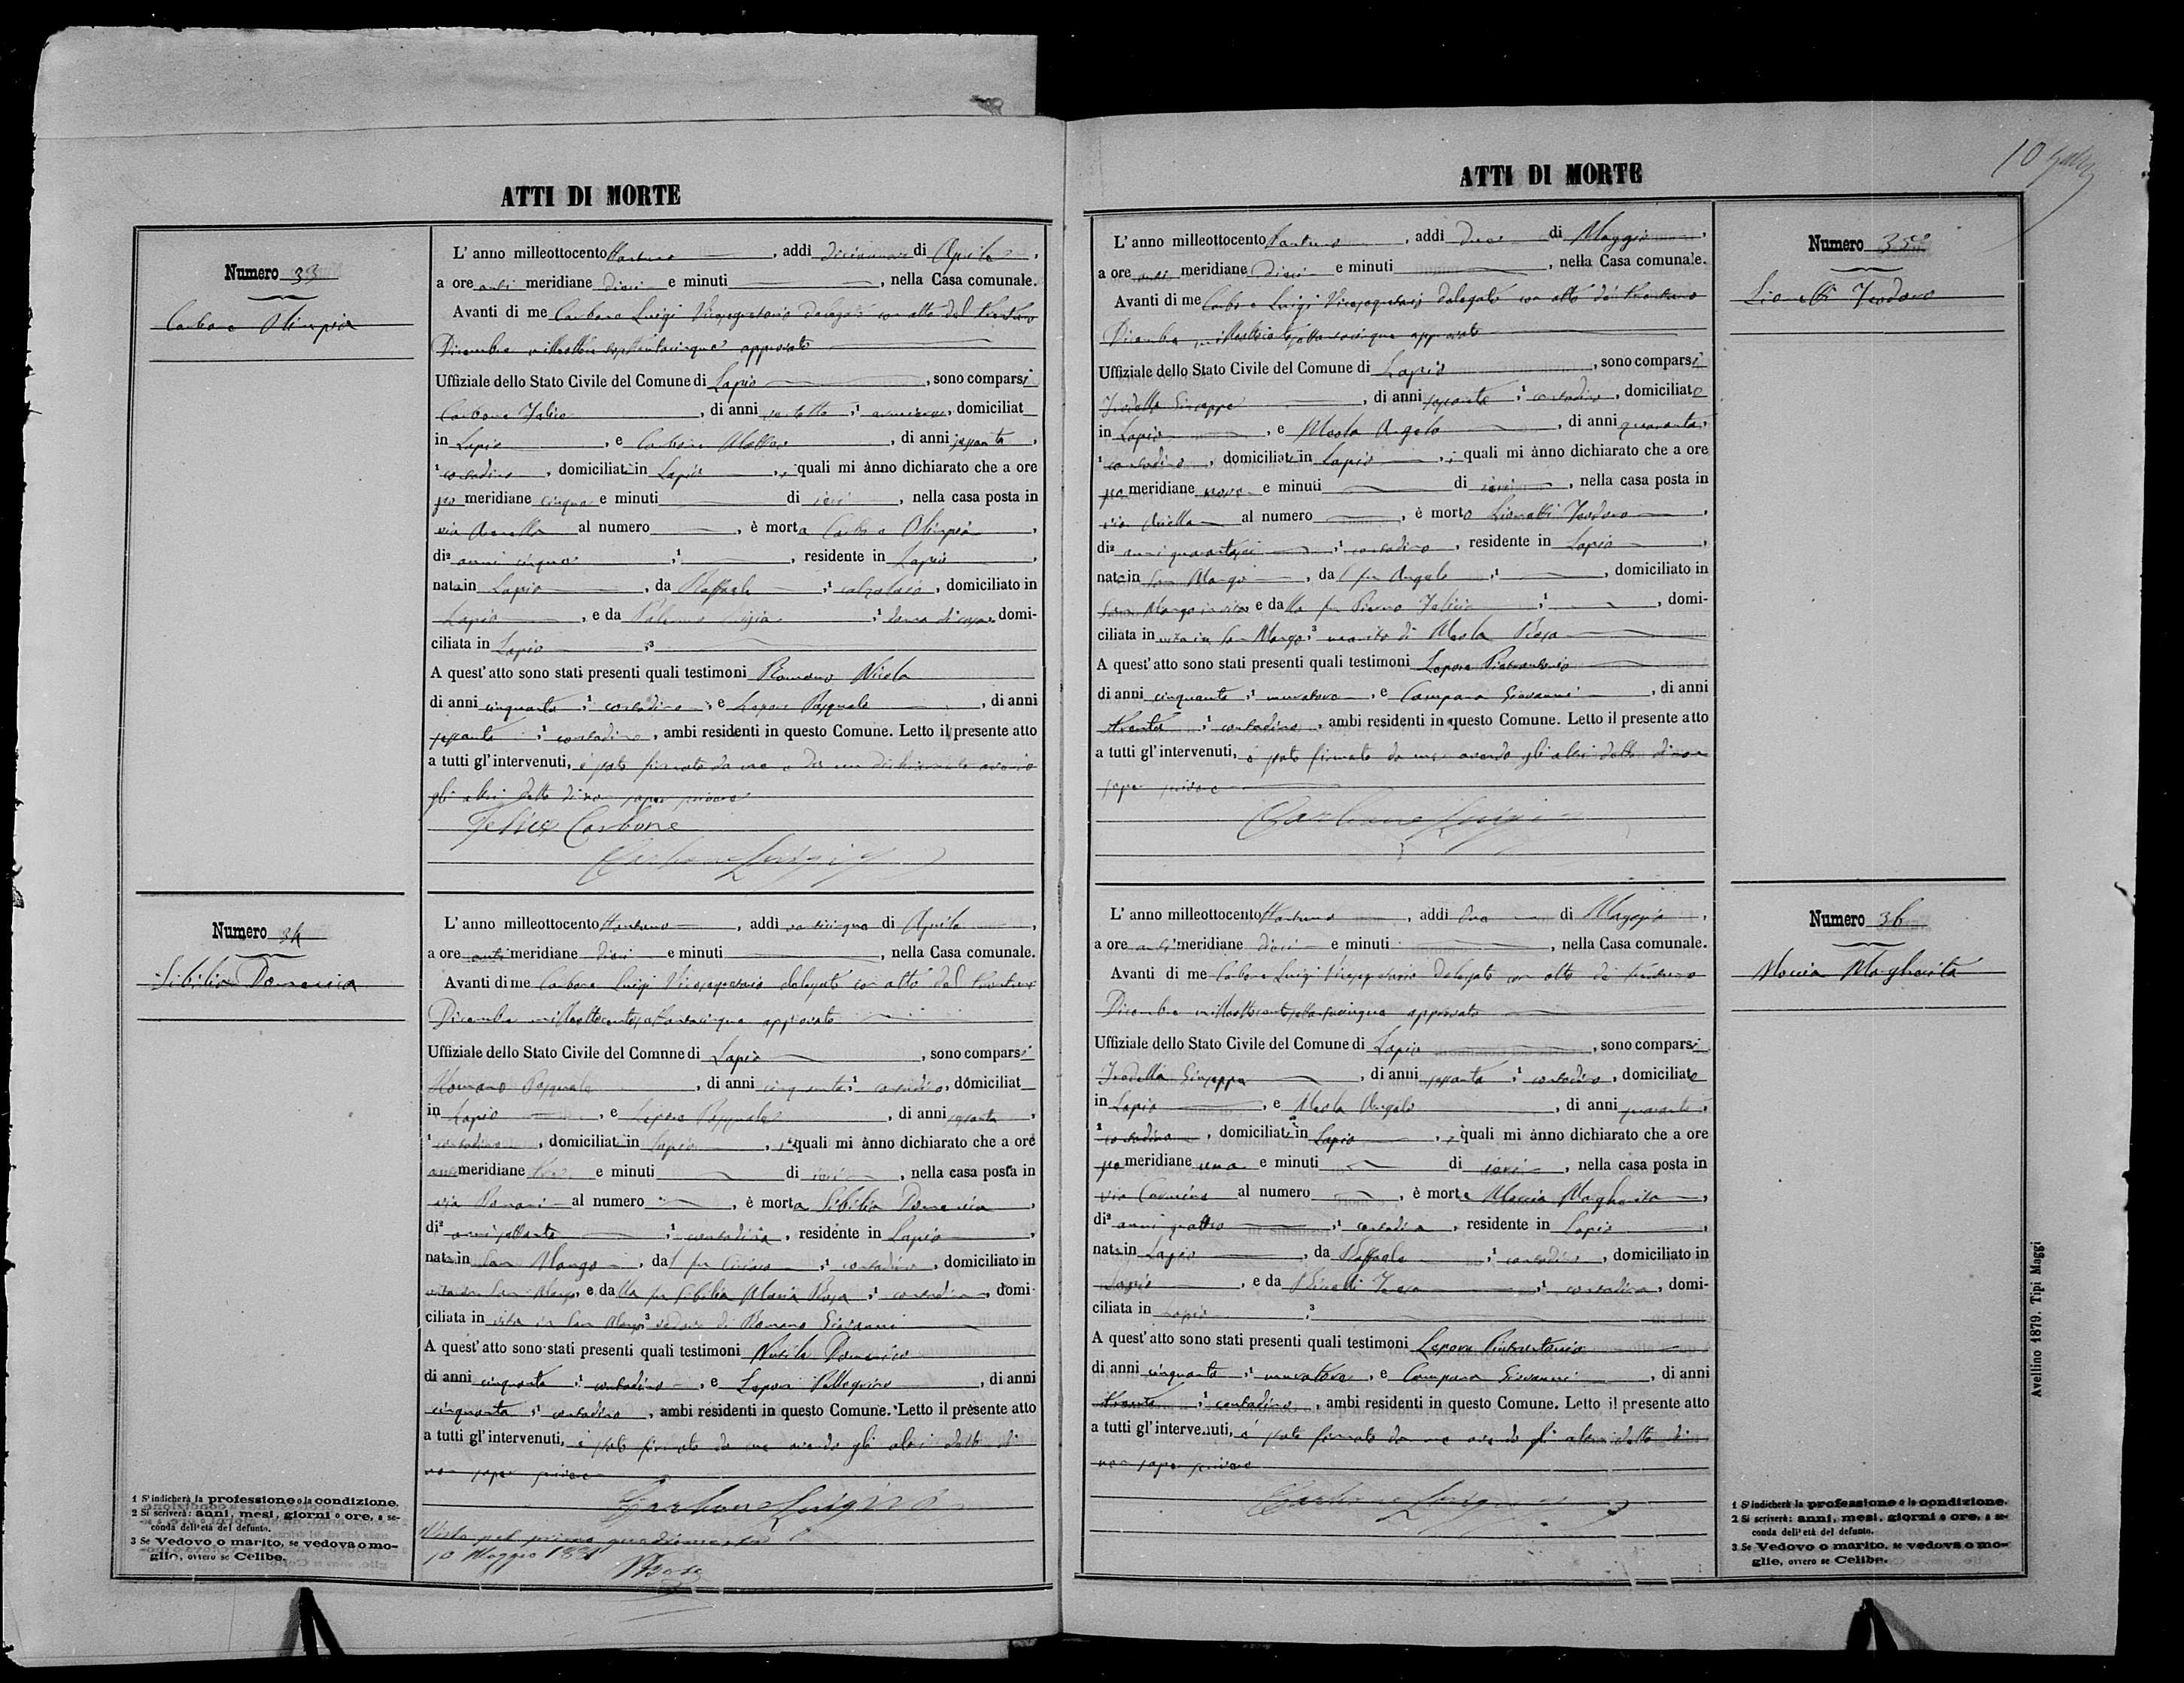 ATTI DI MORTE
Numero 33
Carbone Olimpia
L' anno milleottocento ottantuno, addì diciannove di Aprile,
a ore anti meridiane dieci e minuti , nella Casa comunale.
Avanti di me Carbone Luigi Vicesegretario delegato con atto del trentuno
Dicembre approvato
Uffiziale dello Stato Civile del Comune di Lapio, sono comparsi
Carbone Felice, di anni , domiciliat
in Lapio, e Carbone , di anni sessanta,
contadino, domiciliati in Lapio, i quali mi ànno dichiarato che a ore
po meridiane cinque e minuti di ieri, nella casa posta in
via al numero , è morta Carbone Olimpia,
di anni cinque , residente in Lapio,
nata in Lapio, da Raffaele, calzolaio, domiciliato in
Lapio, e da Palermo , donna di casa, domi-
ciliata in Lapio
A quest' atto sono stati presenti quali testimoni Romano Nicola
di anni cinquanta, contadino, e Lepore Pasquale, di anni
sessanta, contadino, ambi residenti in questo Comune. Letto il presente atto
a tutti gl' intervenuti, è stato firmato da me e da un dichiarante avendo
gli altri detto di non saper scrivere
Felice Carbone
Carbone Luigi
Numero 34
Sibilia Domenica
L' anno milleottocento ottantuno, addì venticinque di Aprile,
a ore anti meridiane dieci e minuti , nella Casa comunale.
Avanti di me Carbone Luigi Vicesegretario delegato con atto del trentuno
Dicembre milleottocentosettantacinque approvato
Uffiziale dello Stato Civile del Comnne di Lapio, sono comparsi
Romano Pasquale, di anni cinquanta, contadino, domiciliat
in Lapio, e Lepore Pasquale, di anni sessanta,
contadino, domiciliati in Lapio, i quali mi ànno dichiarato che a ore
anti meridiane e minuti di ieri, nella casa posta in
via Romani al numero , è morta Sibilia Domenica,
di anni settanta, contadina, residente in Lapio,
nata in San Mango, dal fu Ciriaco, contadino, domiciliato in
vita in San Mango, e dalla fu Sibilia Maria Rosa, contadina, domi-
ciliata in vita in San Mango, vedova di Romano Giovanni
A quest' atto sono stati presenti quali testimoni Domenico
di anni cinquanta, contadino, e Lepore Pellegrino, di anni
cinquanta, contadino, ambi residenti in questo Comune. Letto il presente atto
a tutti gl' intervenuti, è stato firmato da me avendo gli altri detto di
non saper scrivere
Carbone Luigi
Visto pel primo quadrimestre
10 Maggio 1881
1 S' indicherà la professione o la condizione.
2 Si scriverà: anni, mesi, giorni o ore, a se-
conda dell' età del defunto.
3 Se Vedovo o marito, se vedova o mo-
glie, ovvero se Celibe.
ATTI DI MORTE
10
Numero 35
Lionetti Teodoro
L' anno milleottocento ottantuno, addì due di Maggio,
a ore anti meridiane dieci e minuti , nella Casa comunale.
Avanti di me Carbone Luigi Vicesegretario delegato con atto dei trentuno
Dicembre milleottocentosettantacinque approvato
Uffiziale dello Stato Civile del Comune di Lapio, sono comparsi
Irodella Giuseppe, di anni sessanta, contadino, domiciliato
in Lapio, e Meola Angelo, di anni quaranta,
contadino, domiciliato in Lapio, i quali mi ànno dichiarato che a ore
po meridiane nove e minuti di ieri, nella casa posta in
via al numero , è morto Lionetti Teodoro,
di anni quarantasei, contadino, residente in Lapio,
nato in San Mango, dal fu Angelo, , domiciliato in
San Mango in vita e dalla fu Felicia, domi-
ciliata in vita in San Mango, marito di Meola Rosa
A quest' atto sono stati presenti quali testimoni Lepore Pietrantonio
di anni cinquanta, muratore, e Campana Giovanni, di anni
trenta, contadino, ambi residenti in questo Comune. Letto il presente atto
a tutti gl' intervenuti, è stato firmato da me avendo gli altri detto di non
saper scrivere
Carbone Luigi
Numero 36
Moccia Margherita
L' anno milleottocento ottantuno, addì due di Maggio,
a ore anti meridiane dieci e minuti , nella Casa comunale.
Avanti di me Carbone Luigi Vicesegretario delegato con atto dei trentuno
Dicembre milleottocentosettantacinque approvato
Uffiziale dello Stato Civile del Comune di Lapio, sono comparsi
Irodella Giuseppe, di anni sessanta, contadino, domiciliato
in Lapio, e Meola Angelo, di anni quaranta,
contadino, domiciliato in Lapio, i quali mi ànno dichiarato che a ore
po meridiane una e minuti di ieri, nella casa posta in
via Carmine al numero , è morta Moccia Margherita,
di anni quattro, contadina, residente in Lapio,
nata in Lapio, da Raffaele, contadino, domiciliato in
Lapio, e da , contadina, domi-
ciliata in Lapio
A quest' atto sono stati presenti quali testimoni Lepore Pietrantonio
di anni cinquanta, muratore, e Campana Giovanni, di anni
trenta, contadino, ambi residenti in questo Comune. Letto il presente atto
a tutti gl' intervenuti, è stato firmato da me avendo gli altri detto di
non saper scrivere
Carbone Luigi
1 S' indicherà la professione o la condizione.
2 Si scriverà: anni, mesi, giorni o ore, a se-
conda dell' età del defunto.
3 Se Vedovo o marito, se vedova o mo-
glie, ovvero se Celibe.
Avellino 1879. Tipi Maggi